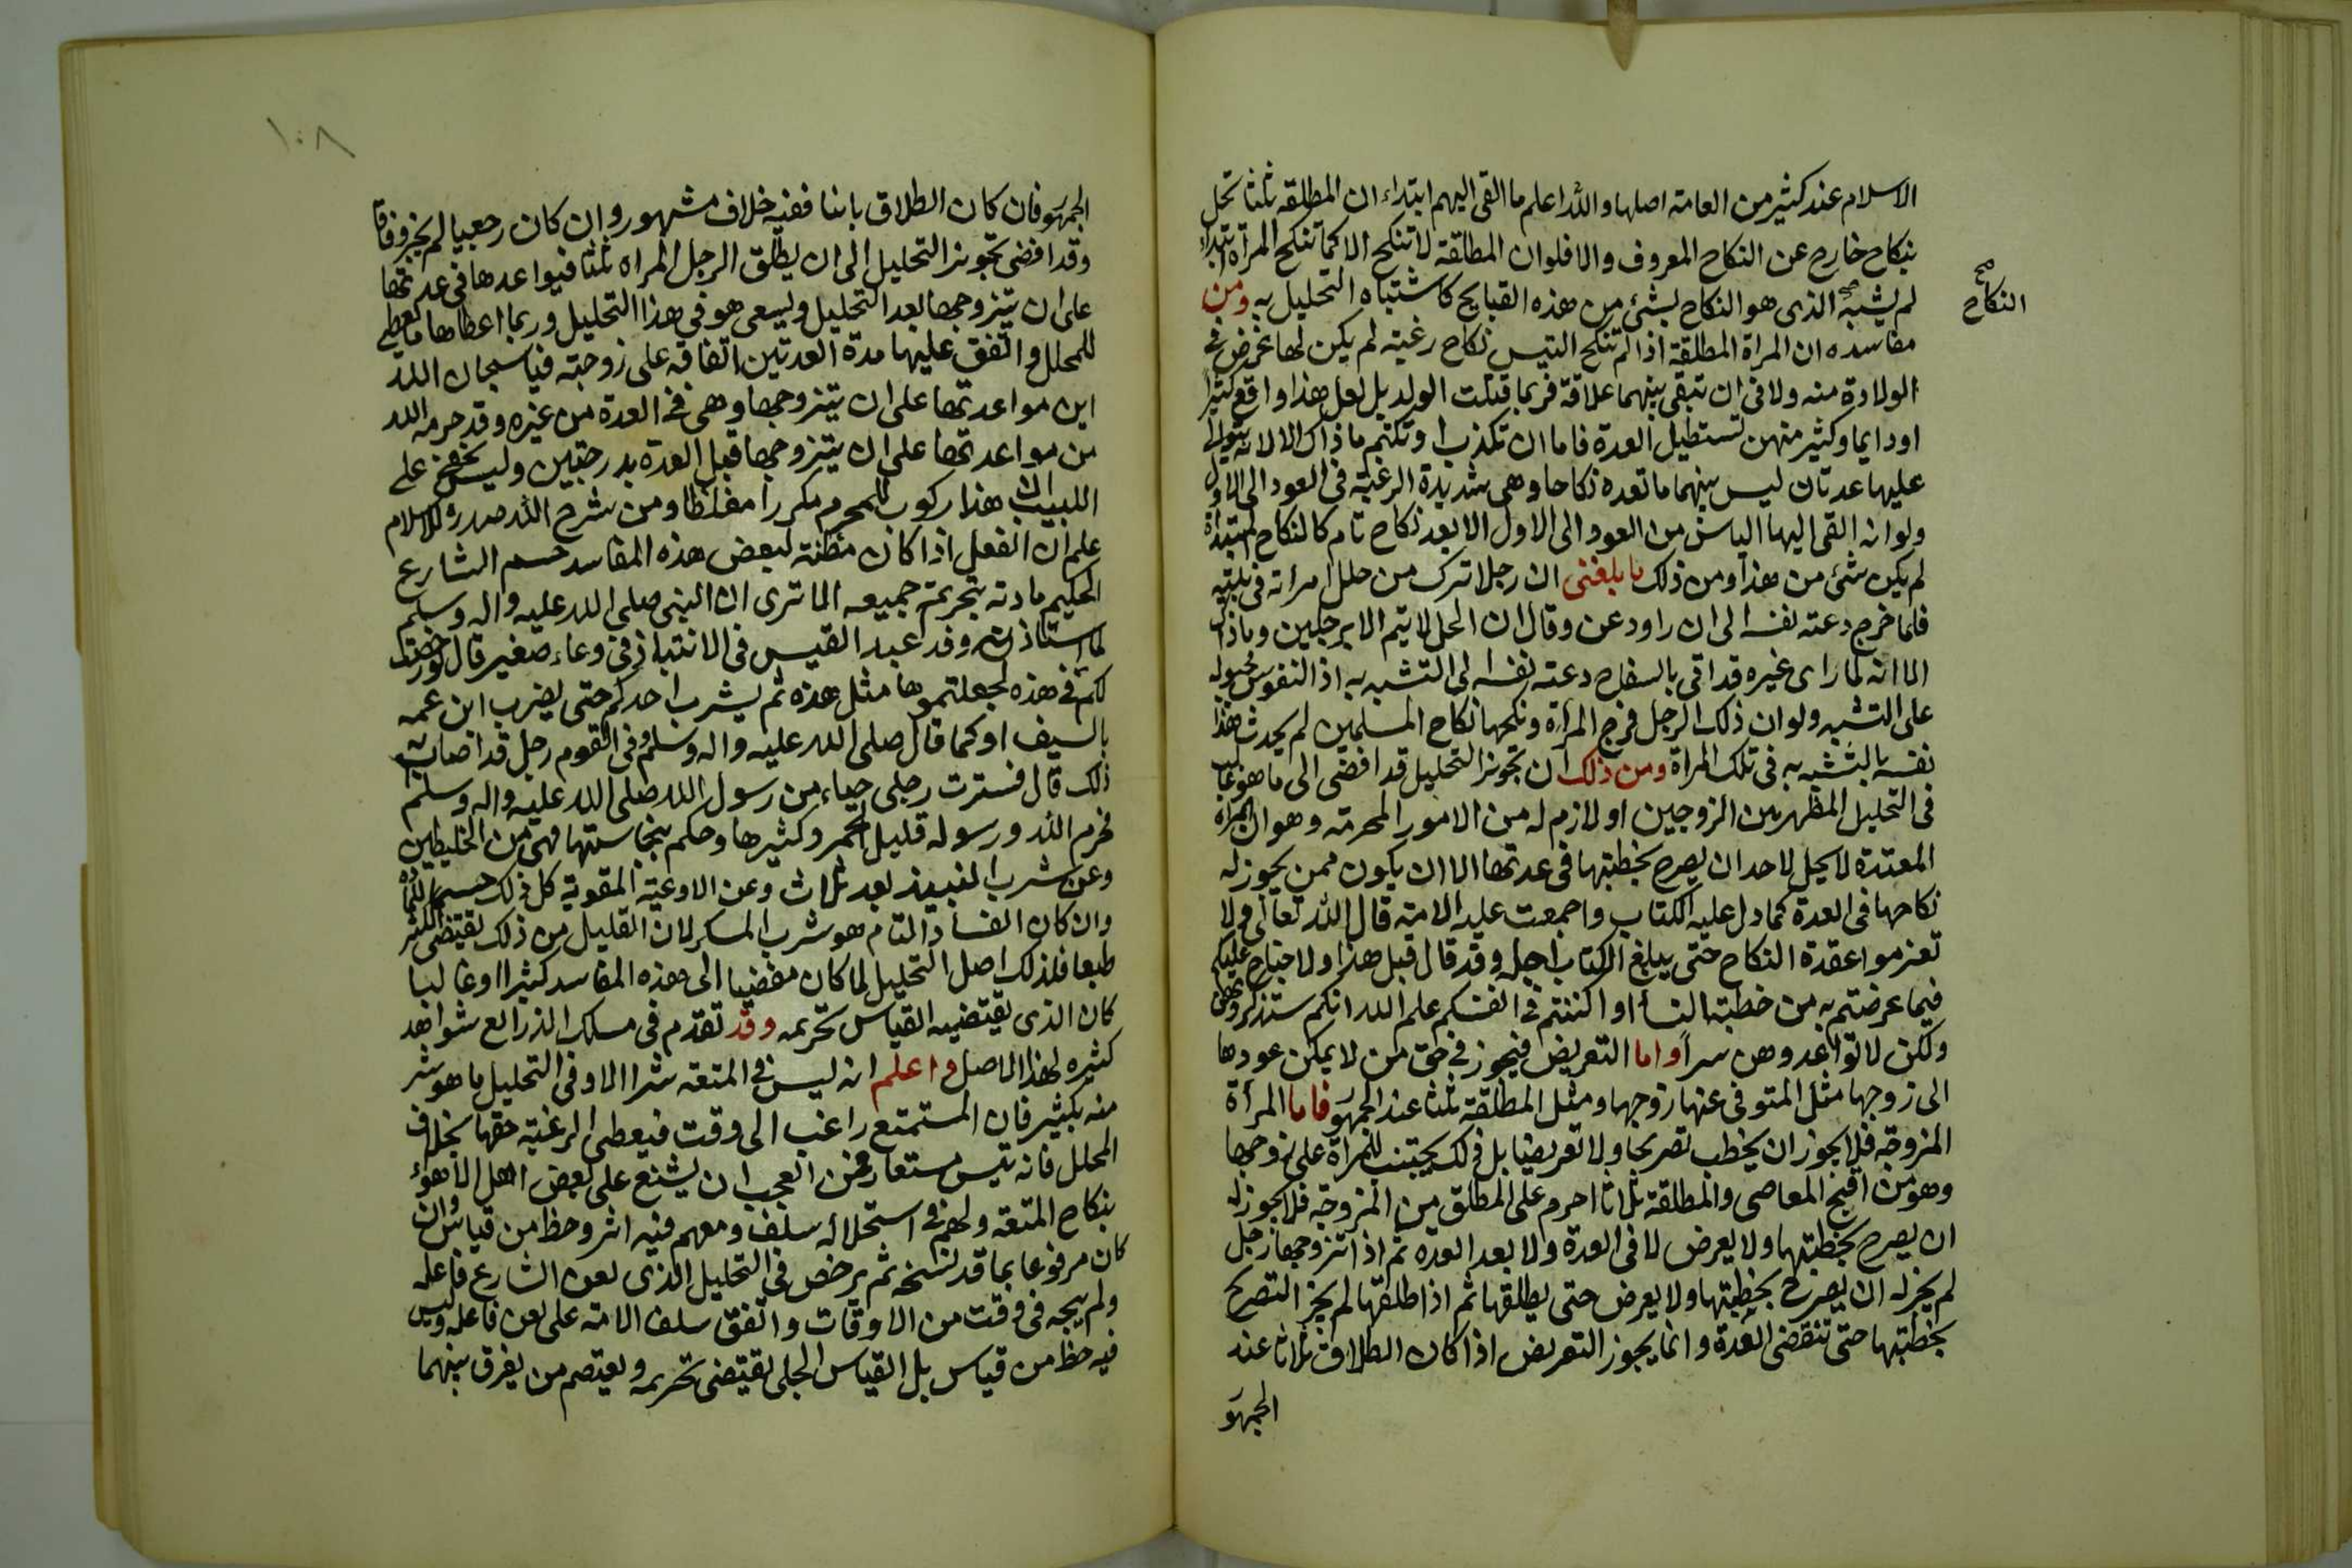 الاسلام عند كثير من العامة اصلها والله اعلم ما القى اليهم ابتداء ان المطلقة ثلثا تحل
بنكاح خارج عن النكاح المعروف والا فلو ان المطلقة لا تنكح الا كما تنكح المرأة ابتداء
لم يشبه الذى هو النكاح بشئ من هذه القبايح كاشتباه التحليل به ومن
النكاح صح
مفاسده ان المراة المطلقة اذا لم تنكح التيس نكاح رغبة لم يكن لها غرض فى
الولادة منه ولا فى ان تبقى بينهما علاقة فربما قتلت الولد بل لعل هذا واقع كثيرا
او دايما وكثير منهن تستطيل العدة فاما ان تكذب او تكتم ما ذاك الا لانه
عليها عدتان ليس بينهما ما تعده نكاحا وهى شديدة الرغبة فى العود الى الاول
ولو انه القى اليها الياس من العود الى الاول الا بعد نكاح تام كالنكاح المبتدأة
لم يكن شئ من هذا ومن ذلك ما بلغنى ان رجلا ترك من حلل امرأته فى بيته
فلما خرج دعته نفسه الى ان راود عن وقال ان الحل لا يتم الا برجلين وما ذاك
الا انه لما راى غيره قد اتى بالسفاح دعته نفسه الى التشبه به اذ النفوس مجبولة
على التشبه ولو ان ذلك الرجل فرج المرأة ونكحها نكاح المسلمين لم يحدث هذا
نفسه بالتشبه به فى تلك المراة ومن ذلك ان تجويز التحليل قد افضى الى ما هو غالب
فى التحليل المظهر من الزوجين او لازم له من الامور المحرمة وهو ان المرأة
المعتدة لا يحل لاحد ان يصرح بخطبتها فى عدتها الا ان يكون ممن يجوز له
نكاحها فى العدة كما دل عليه الكتاب واجمعت عليه الامة قال الله تعالى ولا
تعزموا عقدة النكاح حتى يبلغ الكتاب اجله وقد قال قبل هذا ولا جناح عليكم
فيما عرضتم به من خطبة النسأ او اكننتم فى انفسكم علم الله انكم ستذكرونهن
ولكن لا تواعدوهن سراً واما التعريض فيجوز فى حق من لا يمكن عودها
الى زوجها مثل المتوفى عنها زوجها ومثل المطلقة ثلثا عند الجمهور فاما المرأة
المزوجة فلا يجوز ان يخطب تصريحا ولا تعريضا بل ذلك تخبيب للمرأة على زوجها
وهو من اقبح المعاصى والمطلقة ثلاثا احرم على المطلق من المزوجة فلا يجوز له
ان يصرح بخطبتها ولا يعرض لا فى العدة ولا بعد العدة ثم اذا تزوجها رجل
لم يجز له ان يصرح بخطبتها ولا يعرض حتى يطلقها ثم اذا طلقها لم يجز التصريح
بخطبتها حتى تنقضى العدة وانما يجوز التعريض اذا كان الطلاق ثلاثا عند
الجمهور
١٠٨
الجمهور فان كان الطلاق باينا ففيه خلاف مشهور وان كان رجعيا لم يجز وفاقا
وقد افضى تجويز التحليل الى ان يطلق الرجل المراه ثلثا فيواعدها فى عدتها
على ان يتزوجها بعد التحليل ويسعى هو فى هذا التحليل وربما اعطاها ما يعطيه
للمحلل وانفق عليها مدة العدتين انفاقه على زوجته فيا سبحان الله
اين مواعدتها على ان يتزوجها وهى فى العدة من غيره وقد حرمه الله
من مواعدتها على ان يتزوجها قبل العدة بدرجتين وليس يخفى على
اللبيب ان هذا ركوب للمحرم مكررا مغلظا ومن شرح الله صدره للاسلام
علم ان الفعل اذا كان مظنة لبعض هذه المفاسد حسم الشارع
الحكيم مادته بتحريم جميعه الا ترى ان النبى صلى الله عليه واله وسلم
لما استاذنه وفد عبد القيس فى الانتباذ فى وعاء صغير قال لو رخصت
لكم فى هذه لجعلتموها مثل هذه ثم يشرب احدكم حتى يضرب ابن عمه
بالسيف او كما قال صلى الله عليه واله وسلم وفى القوم رجل قد اصابه
ذلك قال فسترت رجلى حياء من رسول الله صلى الله عليه واله وسلم
فحرم الله ورسوله قليل الخمر وكثيرها وحكم بنجاستها ونهى من الخليطين
وعن شرب النبيذ بعد ثلاث وعن الاوعية المقوية كل ذلك حسما للمادة
وان كان الفساد التام هو شرب المسكر لان القليل من ذلك يقتضى الكثير
طبعا فلذلك اصل التحليل لما كان مفضيا الى هذه المفاسد كثيرا او غالبا
كان الذى يقتضيه القياس تحريمه وقد تقدم فى مسلك الذرائع شواهد
كثيره لهذا الاصل واعلم انه ليس فى المتعة شرا الا وفى التحليل ما هو شر
منه بكثير فان المستمتع راغب الى وقت فيعطى الرغبة حقها بخلاف
المحلل فانه تيس مستعار فمن العجب ان يشنع على بعض اهل الاهوأ
بنكاح المتعة ولهم فى استحلاله سلف ومعهم فيه اثر وحظ من قياس وان
كان مرفوعا بما قد نسخه ثم يرخص فى التحليل الذى لعن الشارع فاعله
ولم يبحه فى وقت من الاوقات واتفق سلف الامة على لعن فاعله وليس
فيه حظ من قياس بل القياس الجلى يقتضى تحريمه ويعتصم من يفرق بينهما